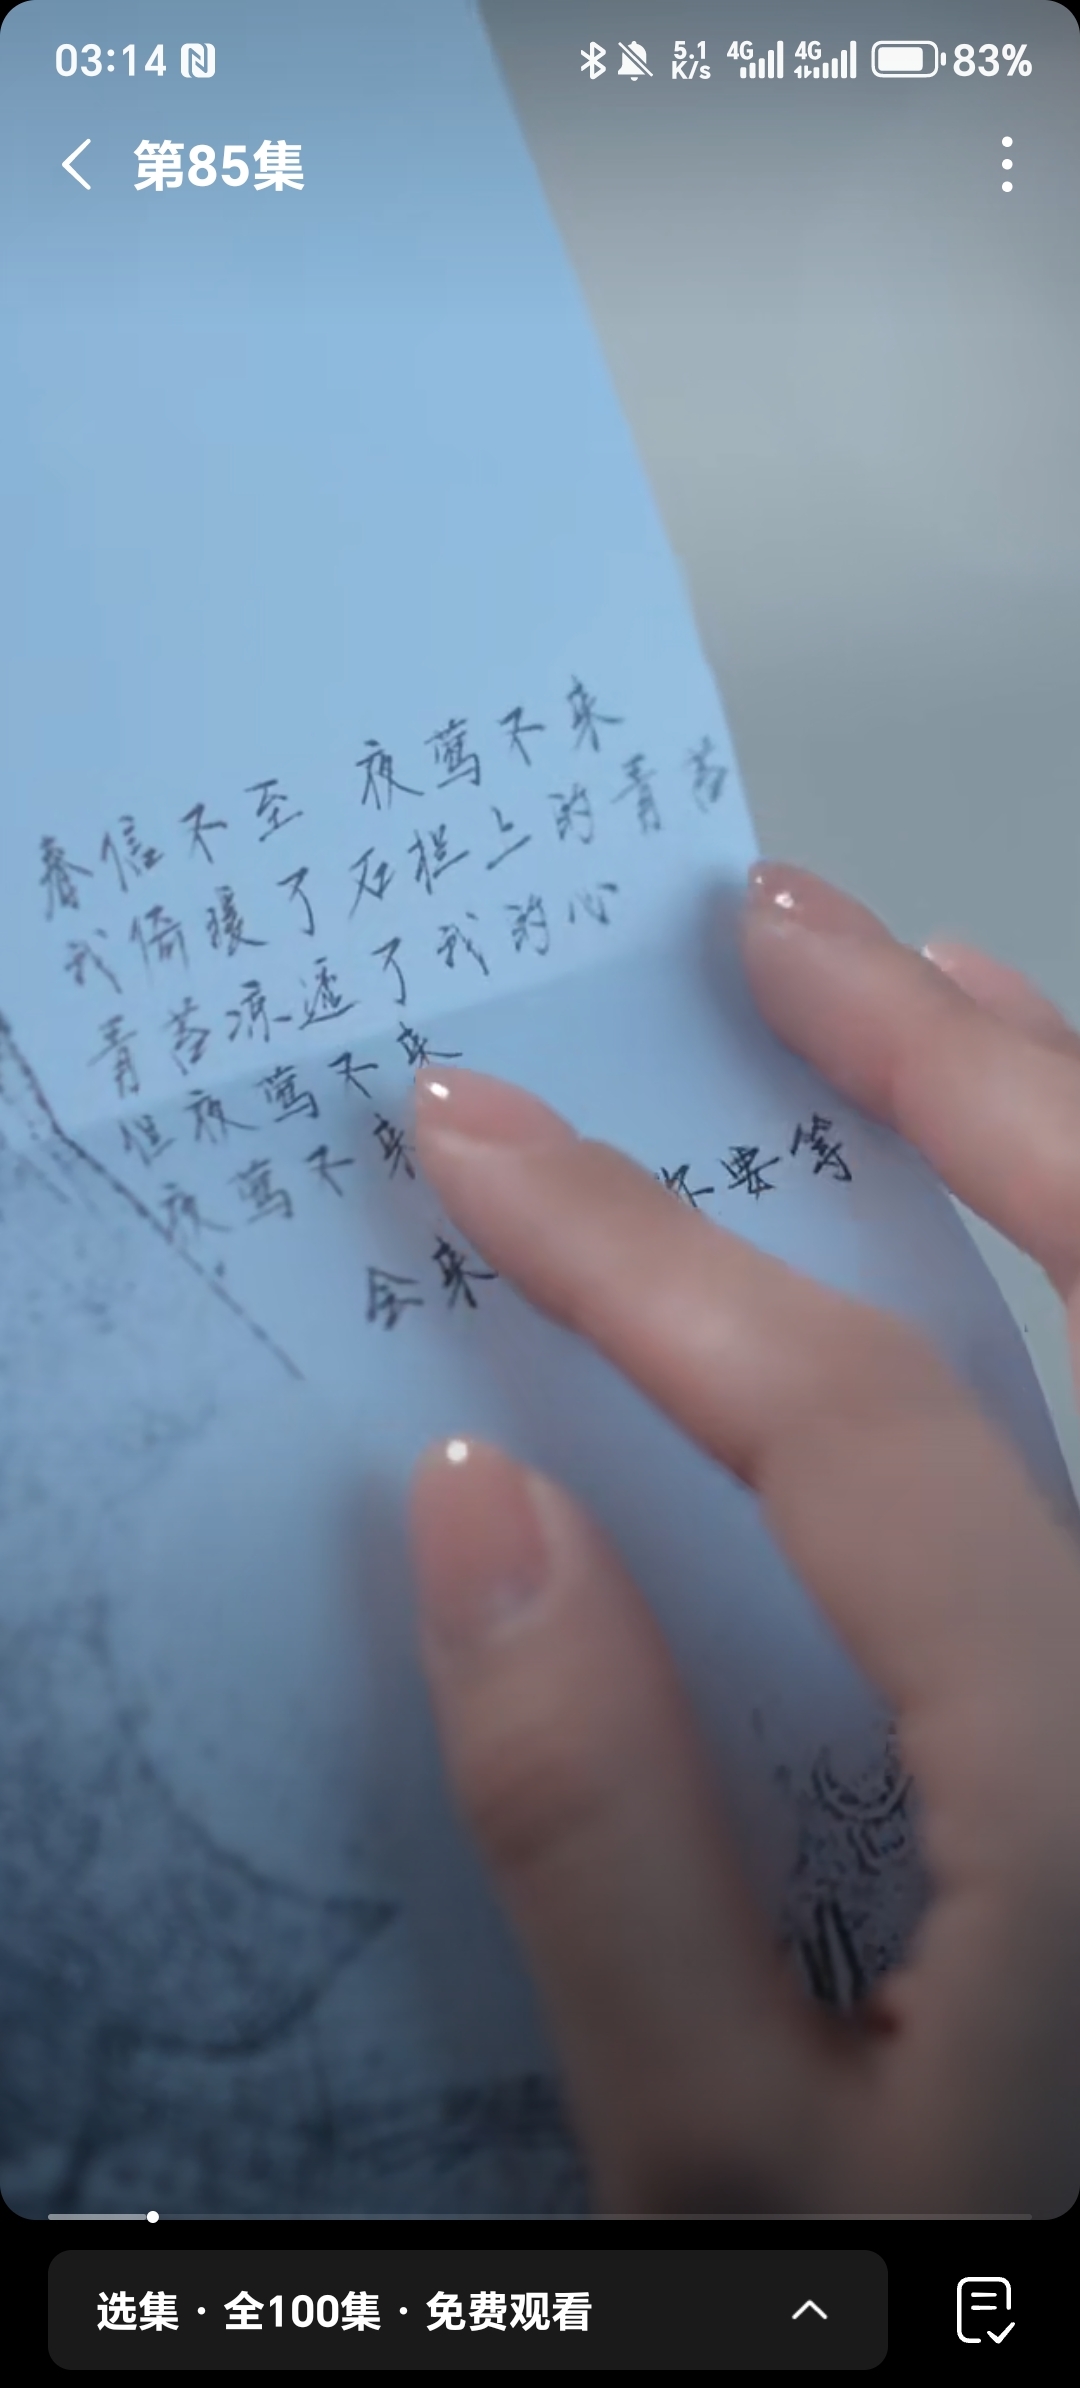 03:14
5.1 K/s 4G 4G 83%
第85集
春信不至 夜莺不来
我倚暖了石栏上的青苔
青苔凉透了我的心
但夜莺不来
夜莺不来
会来
不要等
选集 · 全100集 · 免费观看